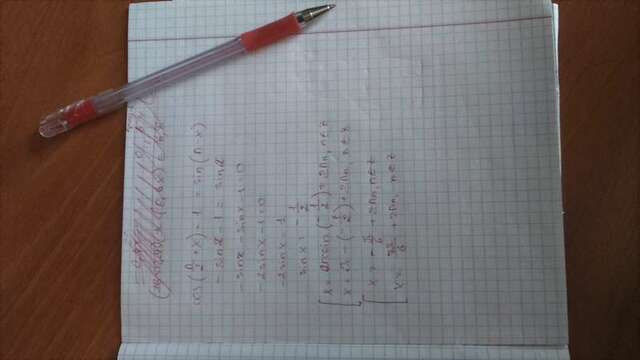 cos(π/2 + x) - 1 = sin(π - x)
- sinx - 1 = sinx
- sinx - sinx - 1 = 0
- 2sinx - 1 = 0
- 2sinx = 1
sinx = - 1/2
[ x = arcsin(- 1/2) + 2πn, n ∈ Z
[ x = π - (- 1/2) + 2πn, n ∈ Z
[ x = - π/6 + 2πn, n ∈ Z
[ x = 7π/6 + 2πn, n ∈ Z